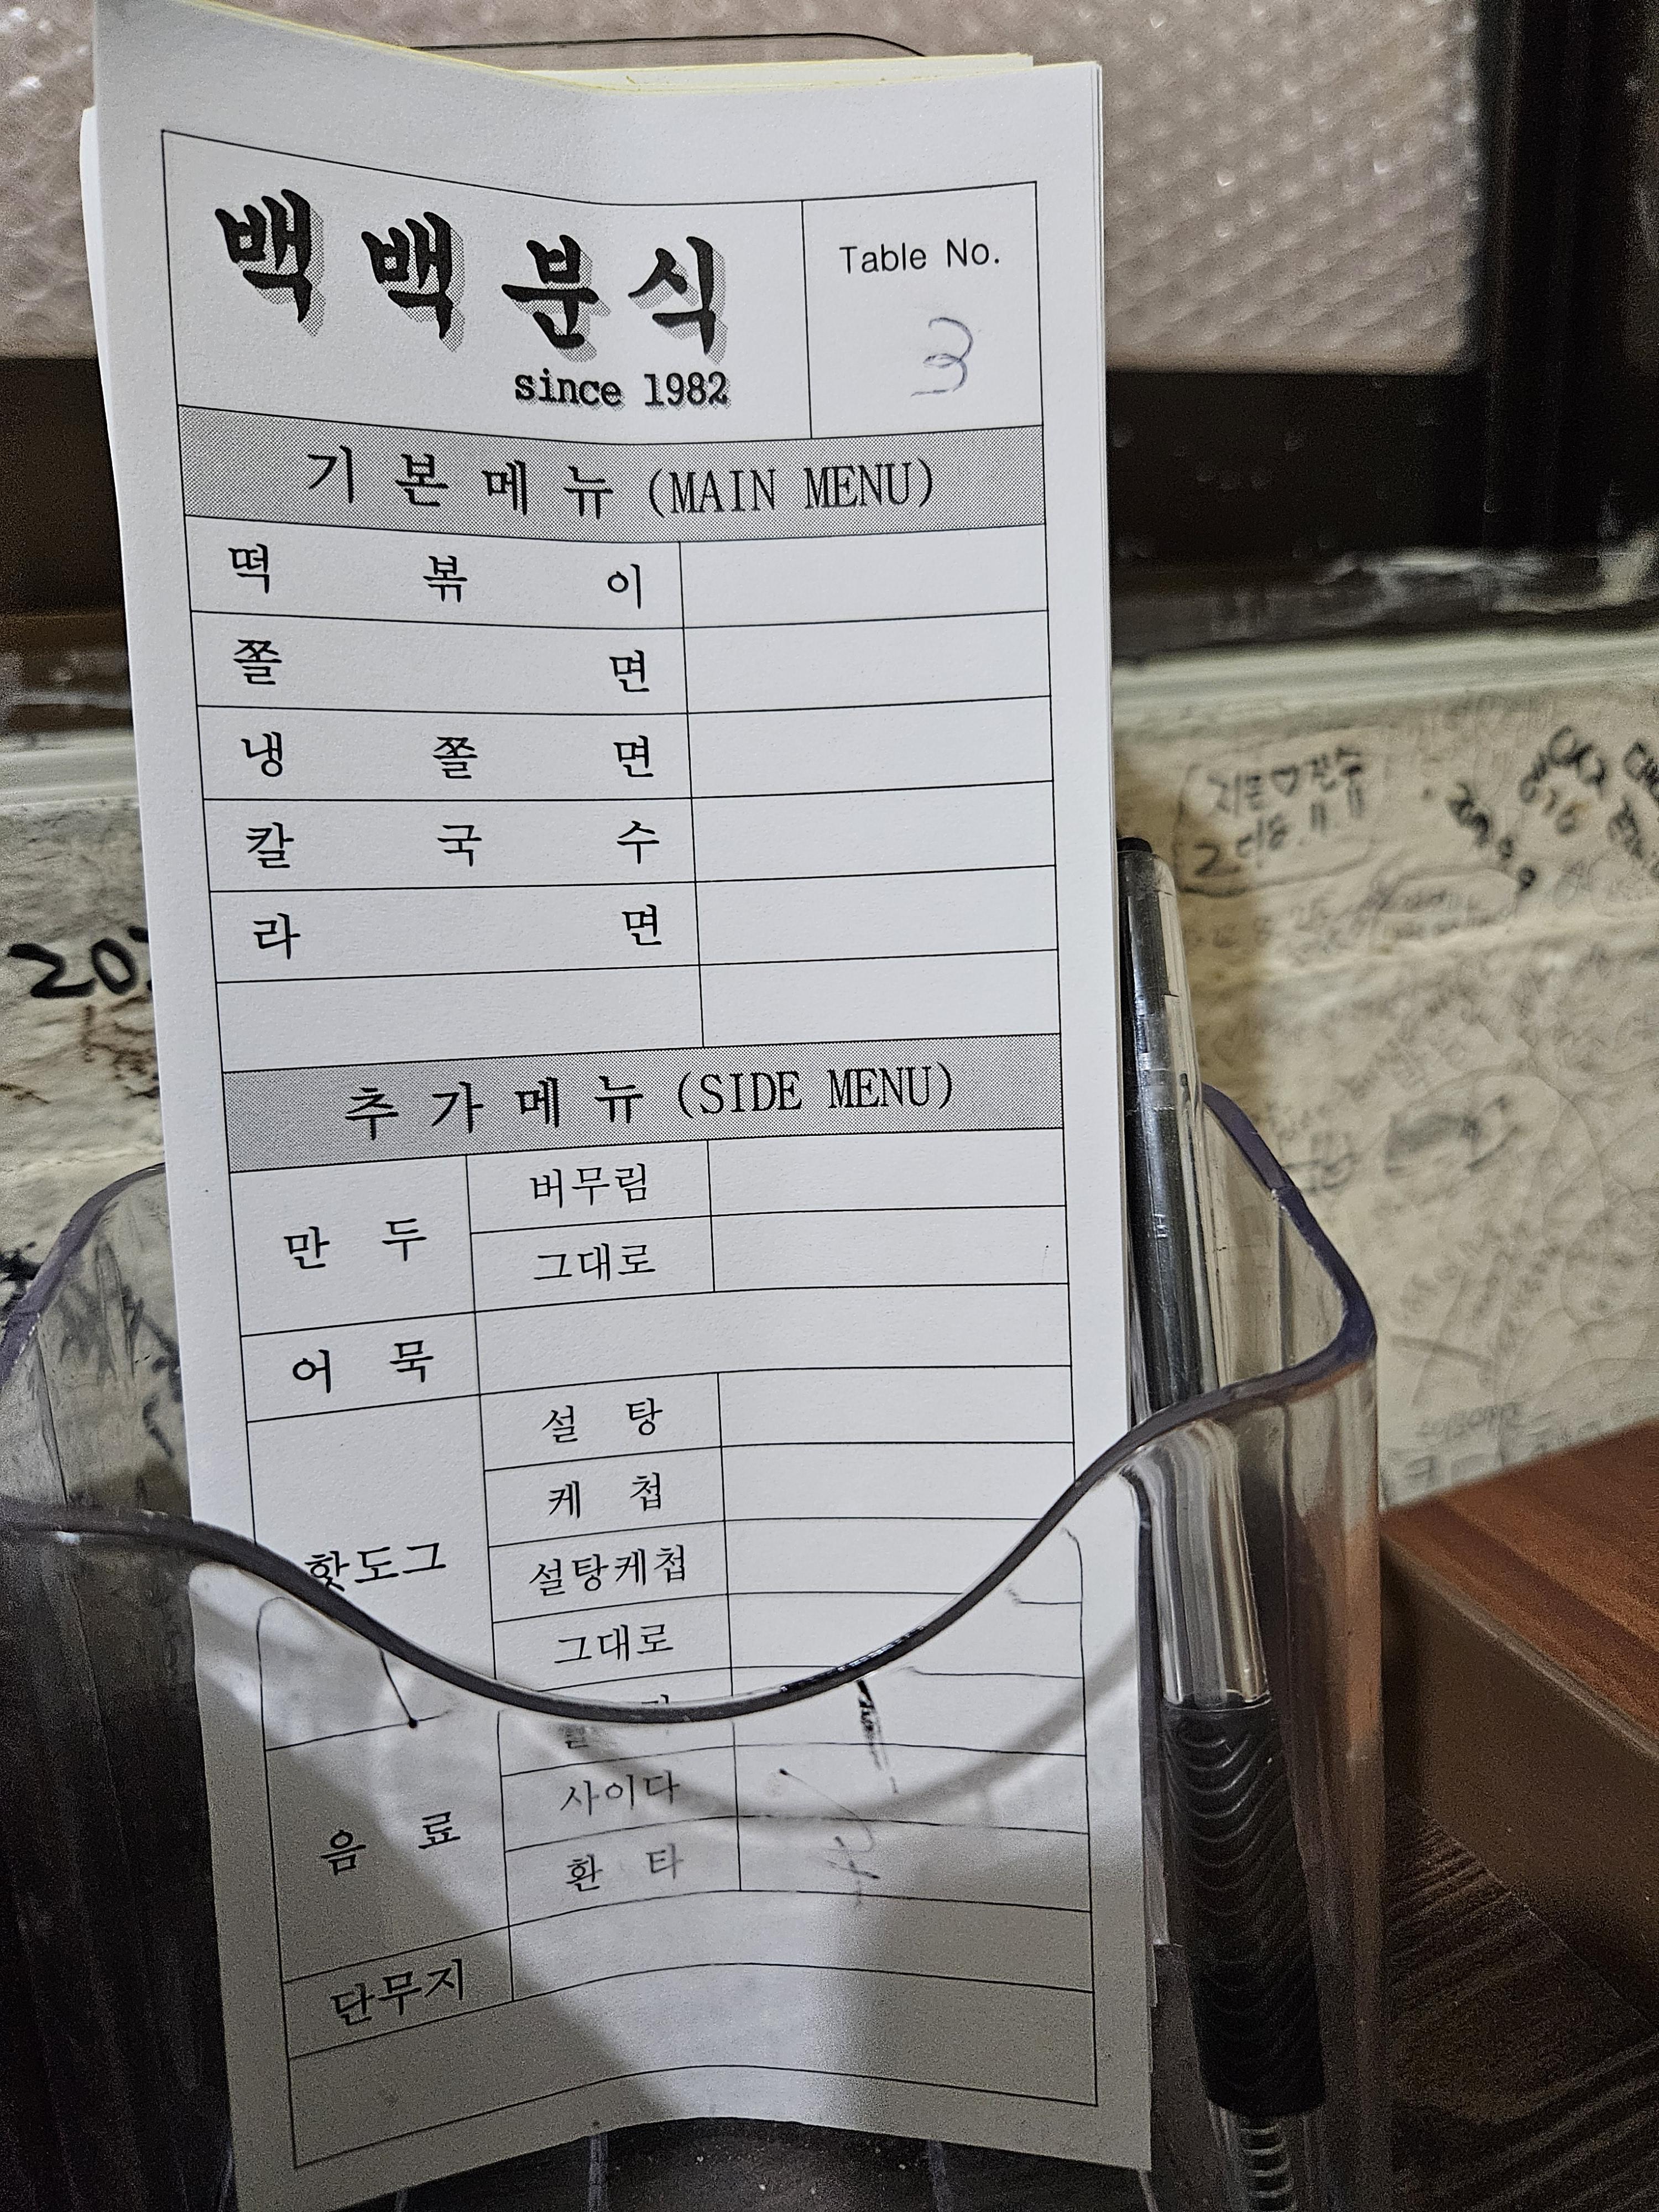 백백분식
since 1982
Table No.
3
기본메뉴(MAIN MENU)
떡볶이
쫄면
냉쫄면
칼국수
라면
추가메뉴(SIDE MENU)
만두
버무림
그대로
어묵
핫도그
설탕
케첩
설탕케첩
그대로
음료
사이다
환타
단무지